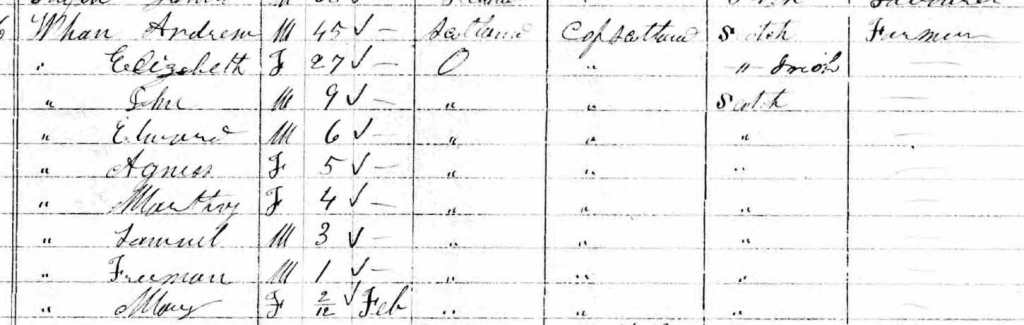 Whan Andrew M 45 ✓ — Scotland C of Scotland Scotch Farmer
" Elizabeth F 27 ✓ — O " " Irish —
" John M 9 ✓ — " " Scotch —
" Edward M 6 ✓ — " " " —
" Agness F 5 ✓ — " " " —
" Marthy F 4 ✓ — " " " —
" Samuel M 3 ✓ — " " " —
" Freeman M 1 ✓ — " " " —
" Mary F 2/12 ✓ Feb " " " —